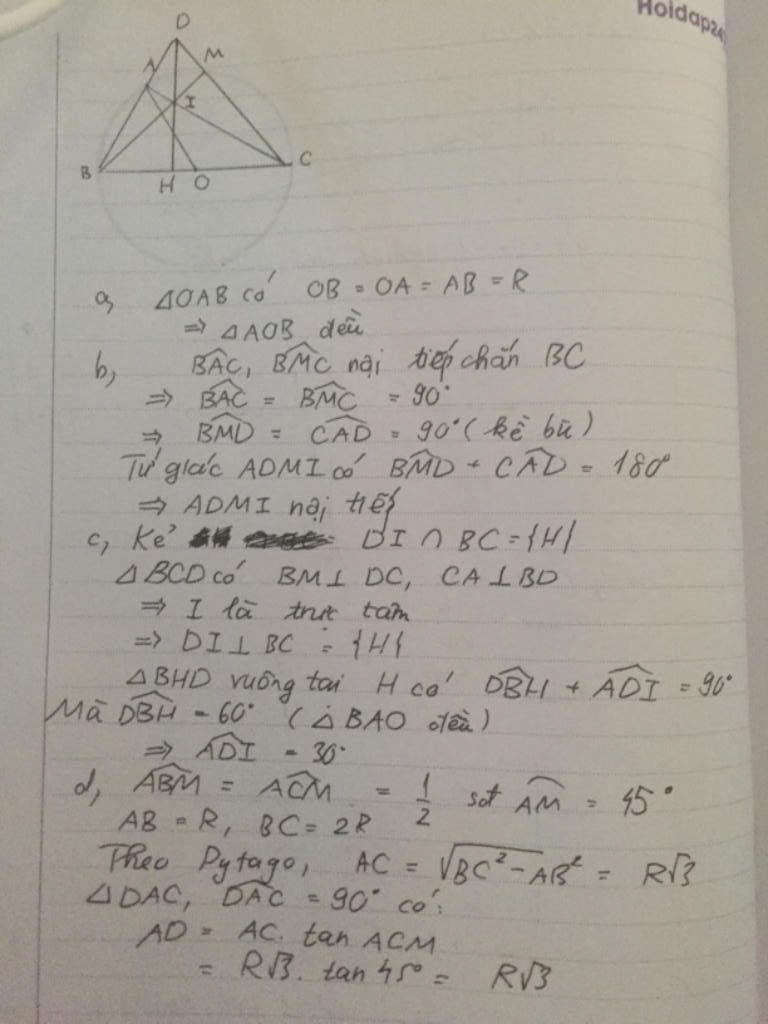 Hoidap24
D
A
M
I
B
C
H
O
a, △OAB có OB = OA = AB = R
⇒ △AOB đều
b, $\widehat{BAC}$, $\widehat{BMC}$ nội tiếp chắn BC
⇒ $\widehat{BAC}$ = $\widehat{BMC}$ = 90°
⇒ $\widehat{BMD}$ = $\widehat{CAD}$ = 90° (kề bù)
Tứ giác ADMI có $\widehat{BMD}$ + $\widehat{CAD}$ = 180°
⇒ ADMI nội tiếp
c, Kẻ DI ∩ BC = {H}
△BCD có BM ⊥ DC, CA ⊥ BD
⇒ I là trực tâm
⇒ DI ⊥ BC = {H}
△BHD vuông tại H có $\widehat{DBH}$ + $\widehat{ADI}$ = 90°
Mà $\widehat{DBH}$ = 60° (△BAO đều)
⇒ $\widehat{ADI}$ = 30°
d, $\widehat{ABM}$ = $\widehat{ACM}$ = $\frac{1}{2}$ sđ $\overset{\frown}{AM}$ = 45°
AB = R, BC = 2R
Theo Pytago, AC = $\sqrt{BC^2 - AB^2}$ = R√3
△DAC, $\widehat{DAC}$ = 90° có:
AD = AC. tan ACM
= R√3. tan 45° = R√3